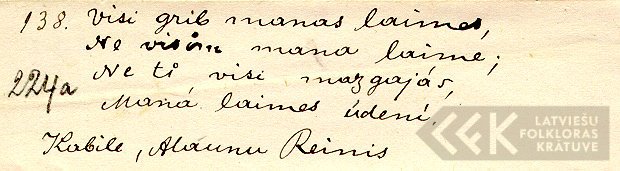 138. Visi grib manas laimes,
Ne visim mana laime;
Ne tī visi mazgajās,
224a
Manā laimes ūdenī.
Kabile, Alaunu Reinis
LATVIEŠU
FOLKLORAS
KRĀTUVE